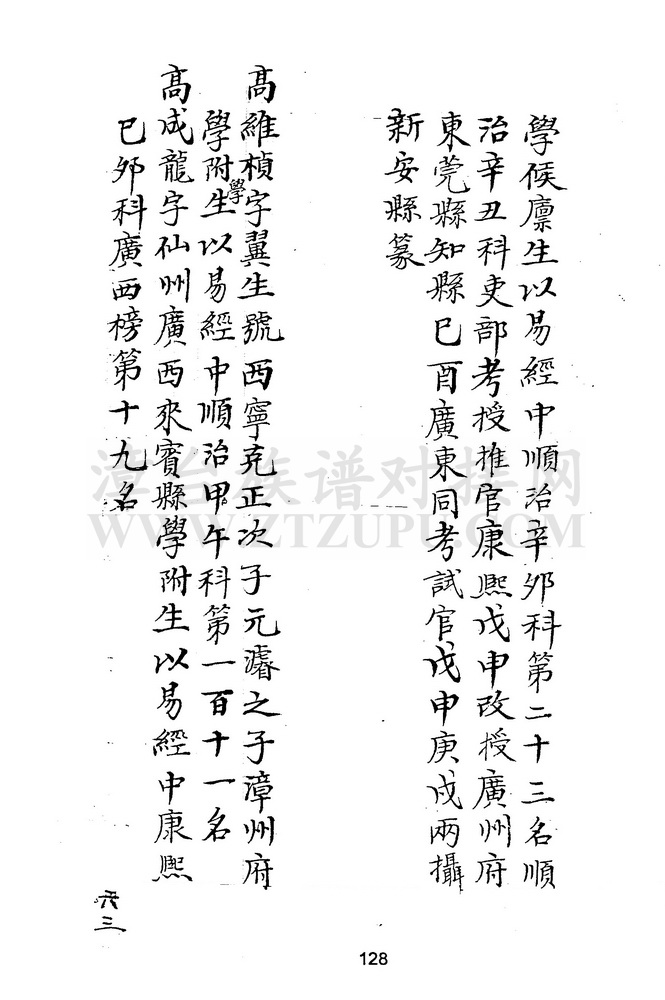 學候廪生以易經中順治辛夘科第二十三名順
治辛丑科吏部考授推官康熙戊申改授廣州府
東莞縣知縣已酉廣東同考試官戊申庚戌兩攝
新安縣篆
高維楨字翼生號西寧克正次子元濬之子漳州府
學
學附生以易經中順治甲午科第一百十一名
高成龍字仙州廣西來賓縣學附生以易經中康熙
已夘科廣西榜第十九名
六三
漳台族谱对接网
WWW.ZTZUPU.COM
128